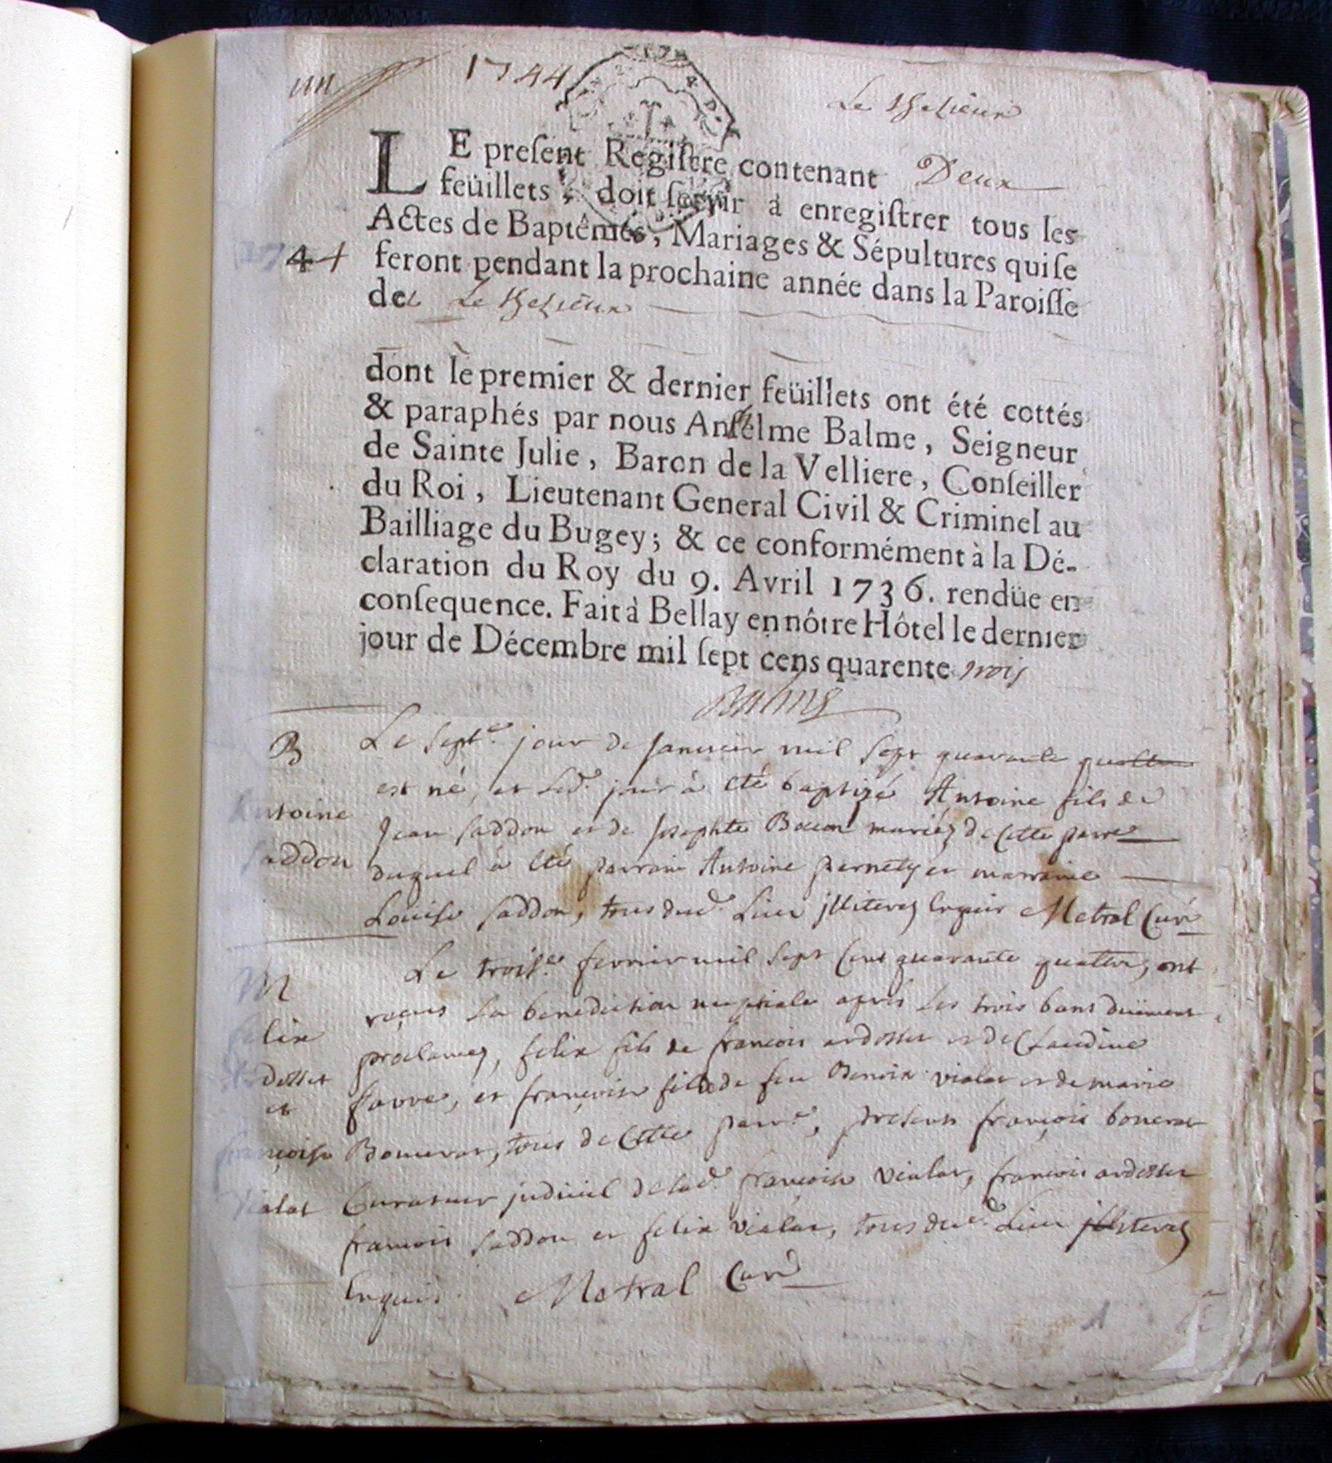 un 1744
LE preſent Regiſtre contenant Deux
feüillets, doit ſervir à enregiſtrer tous les
Actes de Baptêmes, Mariages & Sépultures qui ſe
feront pendant la prochaine année dans la Paroiſſe
de
dont le premier & dernier feüillets ont été cottés
& paraphés par nous Anſelme Balme, Seigneur
de Sainte Julie, Baron de la Velliere, Conſeiller
du Roi, Lieutenant General Civil & Criminel au
Bailliage du Bugey; & ce conformément à la Dé-
claration du Roy du 9. Avril 1736. rendüe en
conſequence. Fait à Bellay en nôtre Hôtel le dernier
jour de Décembre mil ſept cens quarente trois
Balme
B
Antoine
Saddou
Le septe. jour de Janvier mil sept quarante quattre
est né, et led. jour à été baptizé Antoine fils de
Jean Saddou et de Josephte mariéz de cette parre
duquel à été parrain Antoine pernety et marraine
Louise Saddou, tous dud. Lieu jlliterez Enquis Metral Curé
M
felix
ardesset
et
françoise
vialat
Le troise. fevrier mil sept Cent quarante quattre, ont
reçus la benediction nuptiale apres les trois bans düement
proclamez, felix fils de francois ardosset et de Claudine
favre, et françoise fille de feu Benoix vialat et de marie
Bonnerat, tous de cette parre, presens françois bonerat
Curateur judiciel de lad. françoise vialat, francois ardesset
francois Saddou et felix vialat, tous dud. Lieu jlliterez
Enquis. Metral Curé